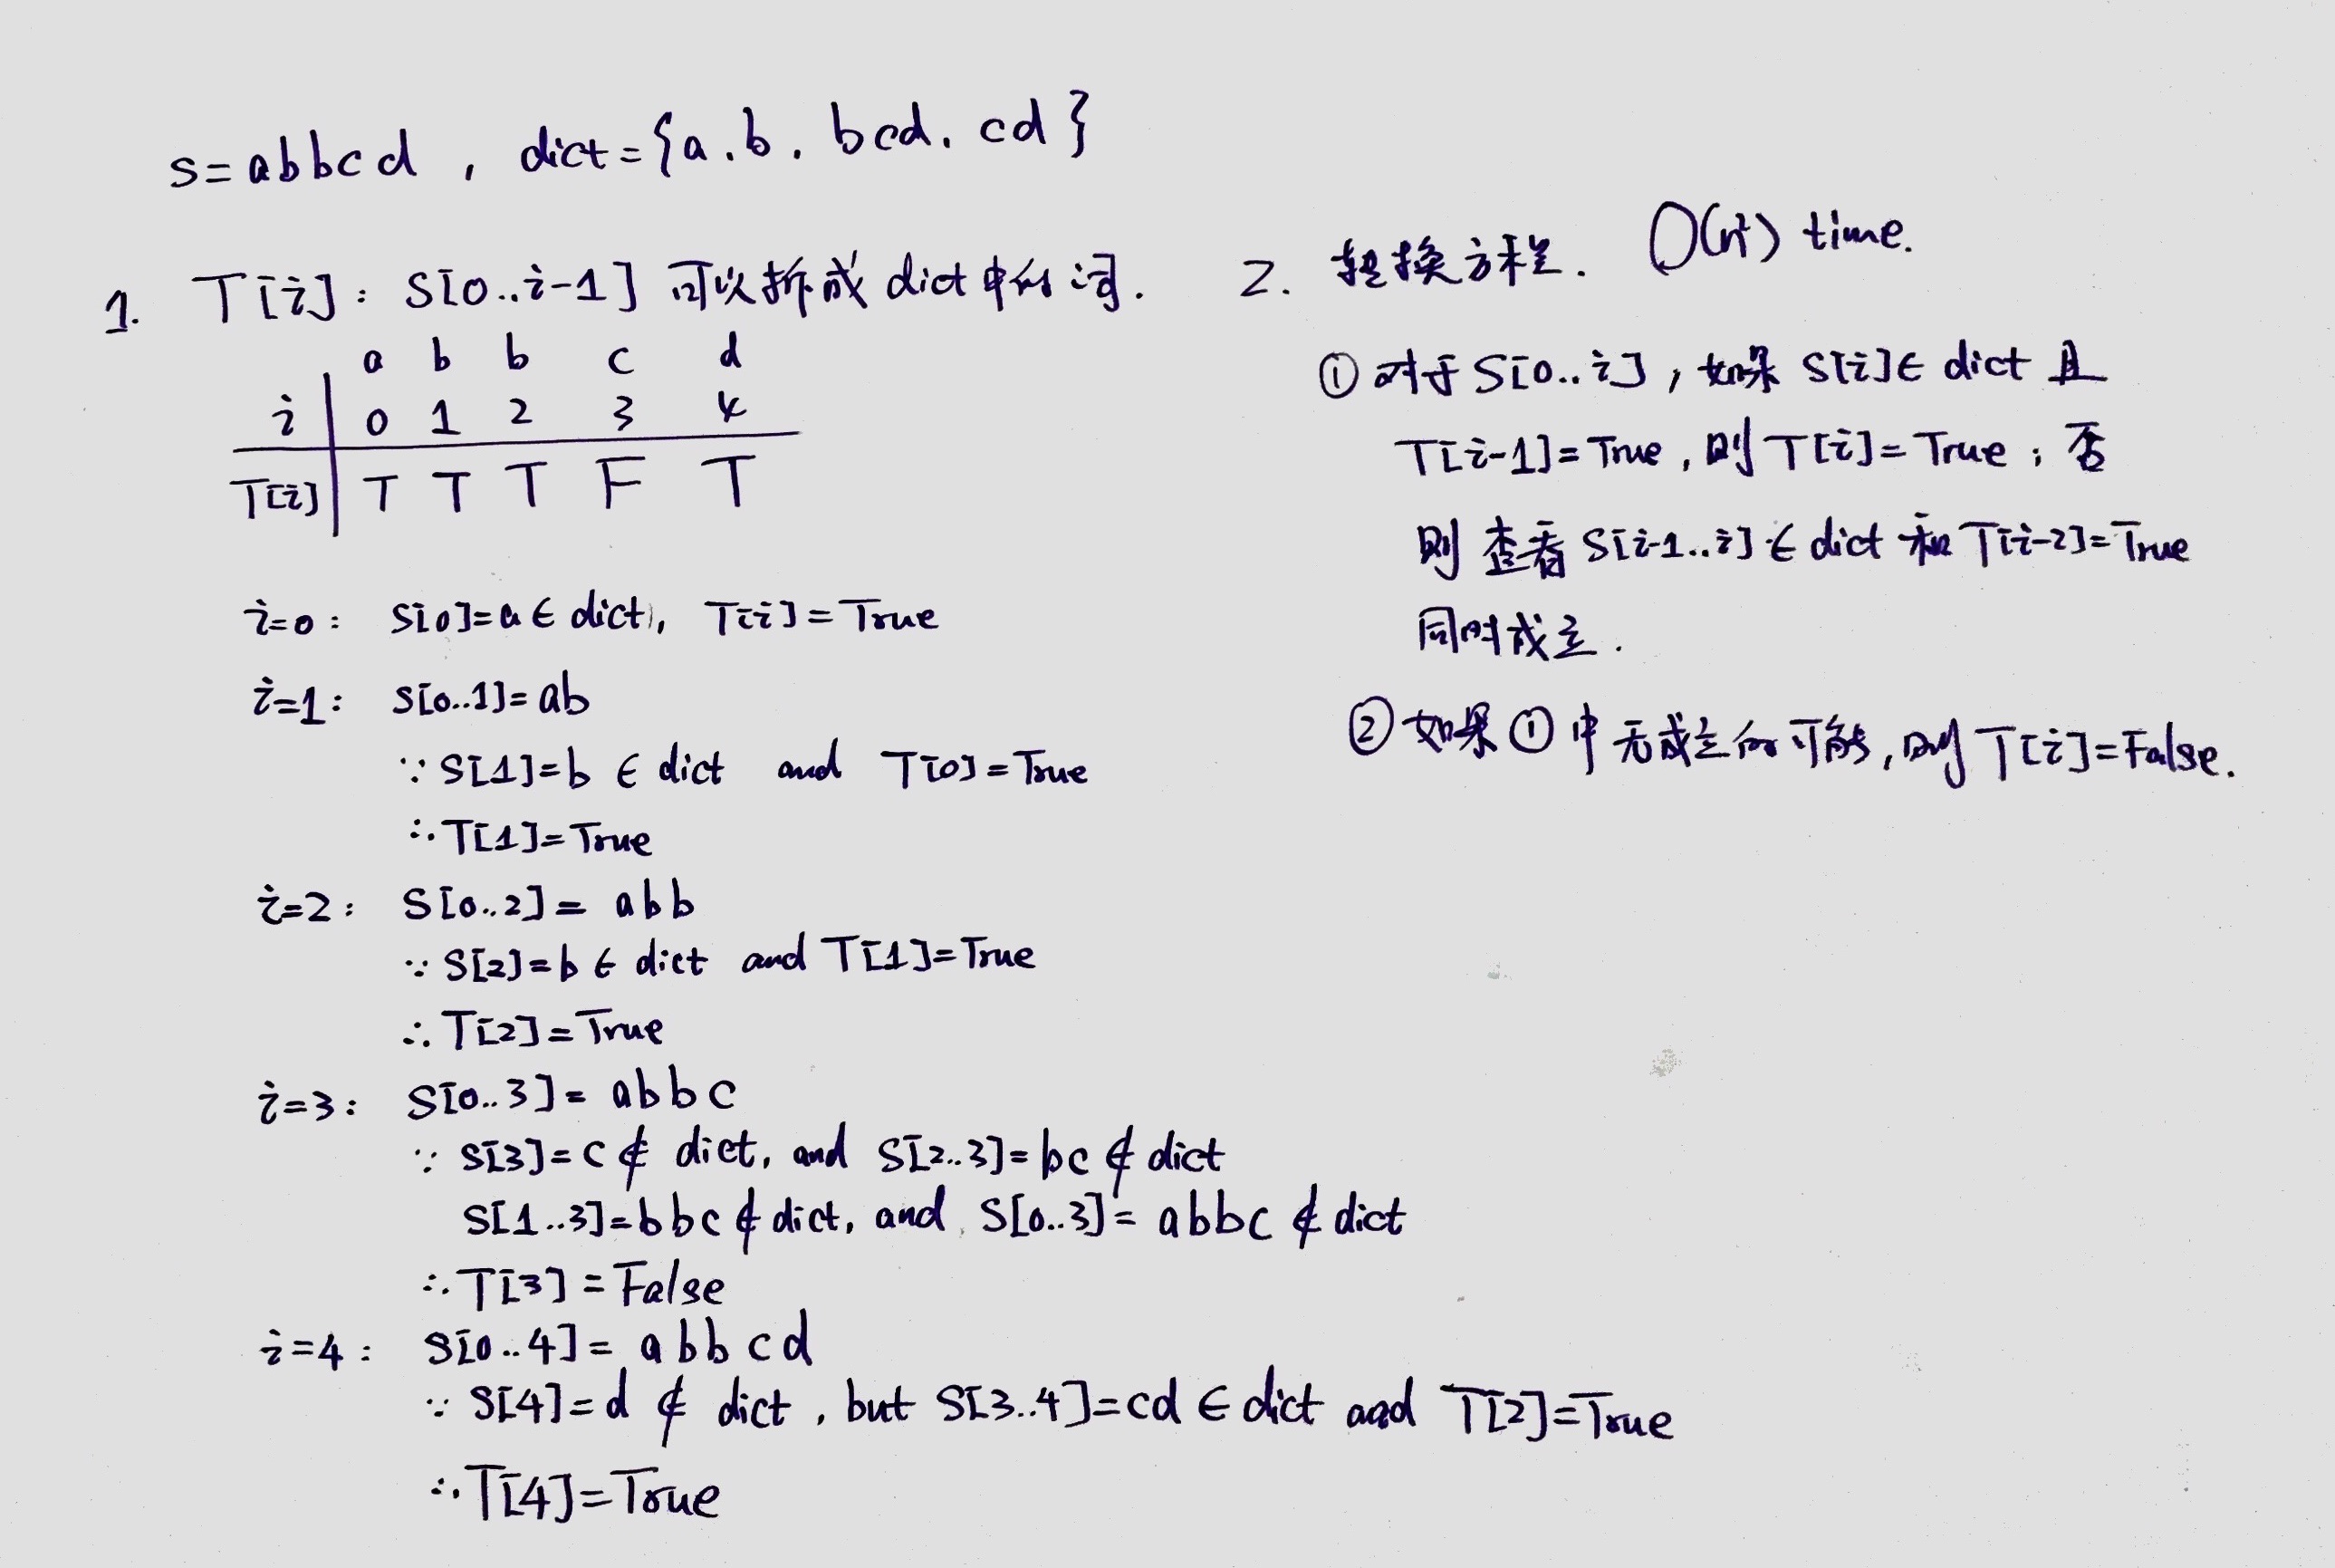 s=abbcd , dict={a.b. bcd. cd}
1. T[i]: S[0..i-1] 可以拆成 dict 中的词.
a b b c d
i 0 1 2 3 4
T[i] T T T F T
i=0: S[0]=a ∈ dict, T[i]=True
i=1: S[0..1]=ab
∵ S[1]=b ∈ dict and T[0]=True
∴ T[1]=True
i=2: S[0..2]= abb
∵ S[2]=b ∈ dict and T[1]=True
∴ T[2]=True
i=3: S[0..3]= abbc
∵ S[3]=c ∉ dict, and S[2..3]=bc ∉ dict
S[1..3]=bbc ∉ dict, and S[0..3]= abbc ∉ dict
∴ T[3]=False
i=4: S[0..4]= abbcd
∵ S[4]=d ∉ dict, but S[3..4]=cd ∈ dict and T[2]=True
∴ T[4]=True
2. 转换方程. O(n²) time.
① 对于 S[0..i], 如果 S[i]∈ dict 且
T[i-1]=True, 则 T[i]=True; 否
则 查看 S[i-1..i]∈ dict 和 T[i-2]=True
同时成立.
② 如果 ① 中 无成立的可能, 则 T[i]=False.